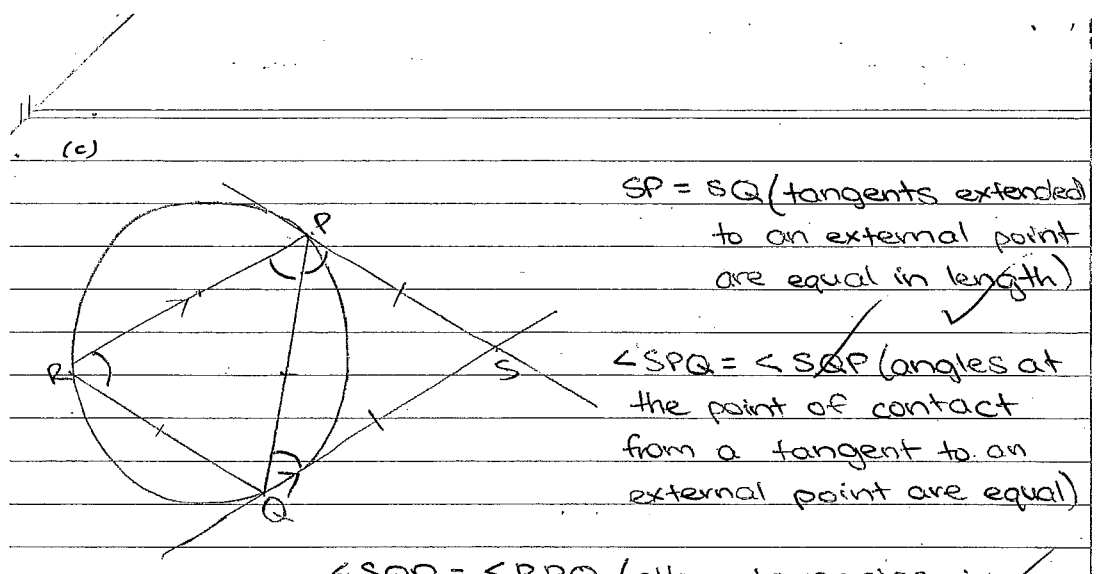 (c)
P
R
S
Q
SP = SQ (tangents extended
to an external point
are equal in length)
∠SPQ = ∠SQP (angles at
the point of contact
from a tangent to an
external point are equal)
∠SQP = ∠RPQ